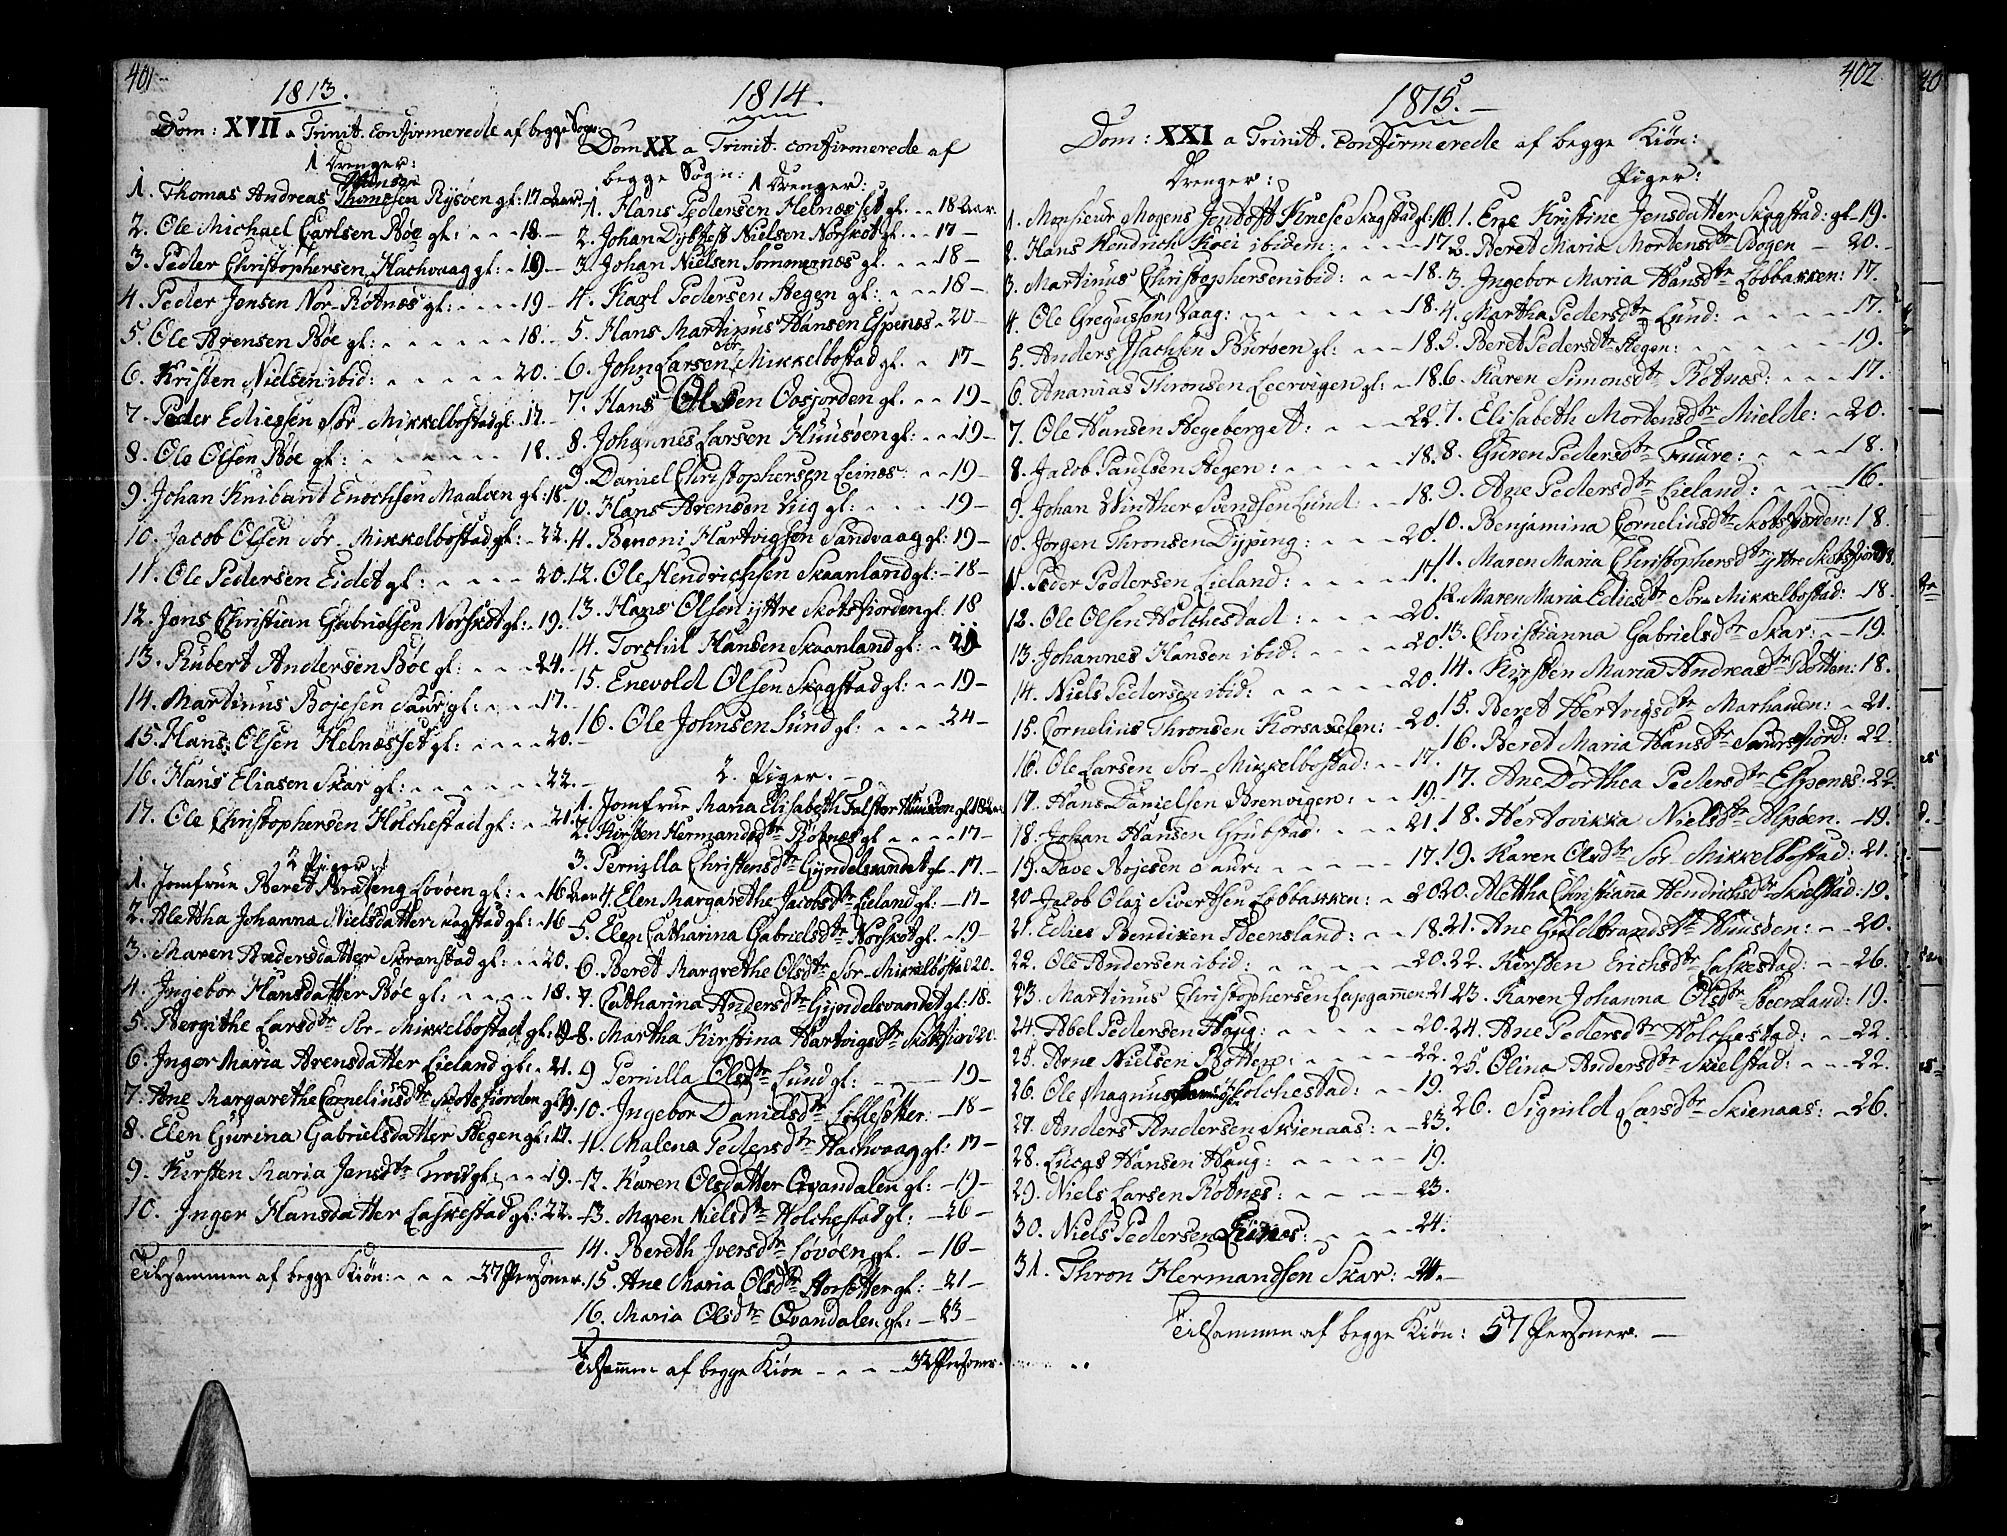 401
1813.
Dom: XVII a Trinit. confirmerede af begge Sogn:
1 Drenger:
1. Thomas Andreas Thomesen Rysøen gl: 17 Aar.
2. Ole Michael Carlsen Bøe gl: 18.
3. Peder Christophersen Hachvaag gl: 19
4. Peder Jensen Nor-Røtnæs gl: 19
5. Ole Arensen Bøe gl: 18.
6. Kristen Nielsen ibid: 20.
7. Peder Ediesen Sør-Mikkelbostad gl: 17.
8. Ole Olsen Bøe gl: 18.
9. Johan Enochsen Maaløen gl: 18
10. Jacob Olsen Sør-Mikkelbostad gl: 22.
11. Ole Pedersen Eidet gl: 20.
12. Jens Christian Gabrielsen Norskot gl: 19.
13. Rubert Andersen Bøe gl: 24.
14. Martinus Bojesen Saur gl: 17.
15. Hans Olsen Helnæsset gl: 20.
16. Hans Eliasen Skar gl: 22.
17. Ole Christophersen Holchestad gl: 21.
2 Piger:
1. Jomfrue Beret Løvøen gl: 16 Aar
2. Alettha Johanna Nielsdatter Skagstad gl: 16
3. Maren Andersdatter Skranstad gl: 20.
4. Ingebor Hansdatter Bøe gl: 18.
5. Bergithe Larsdtr Sør-Mikkelbostad gl: 19
6. Inger Maria Arensdatter Lieland gl: 21.
7. Ane Margarethe Corneliusdtr Skotsfiorden gl: 19
8. Elen Gurina Gabrielsdatter Stegen gl: 17.
9. Kirsten Maria Jensdtr gl: 19.
10. Inger Hansdatter Laskestad gl: 22.
Tilsammen af begge Kiøn: 27 Personer.
1814.
Dom XX a Trinit. confirmerede af
begge Sogn:
1 Drenger:
1. Hans Pedersen Helnæsset gl. 18 Aar.
2. Johan Nielsen Norskot gl. 17
3. Johan Nielsen Sommernæs gl. 18
4. Karl Pedersen Stegen gl: 18
5. Hans Martinus Hansen Espenæs 20
6. John Larsen Sør Mikkelbostad gl. 17
7. Hans Olsen Oosjorden gl. 19
8. Johannes Larsen Huusøen gl: 19
9. Daniel Christophersen Leines: 19
10. Hans Arensen Viig gl: 19
11. Benoni Hartvigsen Sandvaag gl: 19
12. Ole Hendrichsen Skaanland gl: 18
13. Hans Olsen ijttre Skotsfiorden gl: 18
14. Torstil Hansen Skaanland gl: 21
15. Enevold Olsen Skagstad gl: 19
16. Ole Johnsen Lund gl: 24
2. Piger.
1. Jomfrue Maria Elisabeth Falster Huusøen gl. 18 Aar
2. Kirsten Hermandsdtr Røtnæs gl 17
3. Pernilla Christensdtr Gyndelvandet gl 17.
4. Elen Margarethe Jacobsdtr Lieland gl: 17
5. Elen Catharina Gabrielsdtr Norskot gl. 19
6. Beret Margrethe Olsdtr Sør-Mikkelbostad 20.
7. Catharina Andersdtr Gyndelsvandet gl: 18.
8. Martha Kirstina Hartvigsdtr Skotsfiord 20.
9 Pernilla Olsdtr Lund gl: 19
10. Ingebor Danielsdtr Løtlesetter: 18
11. Malena Pedersdtr Hachvaag gl: 17
12. Karen Olsdatter Qvandalen gl: 19
13. Maren Nielsdtr Holchestad gl: 26
14. Bereth Iversdtr Løvøen gl. 18
15. Ane Maria Olsdtr Horsetter gl: 21
16. Maria Olsdtr Qvandalen gl: 23
Tilsamme af begge Kiøn 32 Personer.
402
1815.
Dom: XXI a Trinit. confirmerede af begge Kiøn:
Drenger:
1. Monsieur Mogens Jentoft Skagstad gl: 16.
2. Hans Hendrich ibidem: 17
3. Martinus Christophersen ibid: 18.
4. Ole Gregussen Vaag: 18.
5. Anders Isachsen Burøen gl: 18
6. Ananias Thronsen Leervigen gl: 18
7. Ole Hansen Hegeberget: 22
8. Jacob Paulsen Stegen: 18.
9. Johan Winther Svendsen Lund: 18.
10. Jørgen Thronsen Dyping: 20.
11. Peder Pedersen Lieland: 17.
12. Ole Olsen Holchestad: 20.
13. Johannes Hansen ibid: 20.
14. Niels Pedersen ibid: 20.
15. Cornelius Thronsen Korsaxelen: 20.
16. Ole Larsen Sør-Mikkelbostad: 17.
17. Hans Danielsen Brenvigen: 19.
18. Johan Hansen Grubstad: 21.
19. Dave Bojesen Saur: 17
20 Jacob Olaj Sivertsen Løbbakken: 20
21. Edies Bendixen Steensland: 18
22. Ole Andersen ibid: 20.
23. Martinus Christophersen Lapgammen 21
24. Abel Pedersen Haug: 20.
25. Arne Nielsen Botten: 22.
26. Ole Magnus Holchestad: 19.
27. Anders Andersen Skienaas: 23.
28. Lucas Hansen Haug: 19.
29. Niels Larsen Røtnæs: 23.
30. Niels Pedersen Leines: 24.
31. Thron Hermandsen Skar: 24.
Piger:
1. Ene Kristine Jensdatter Skagstad: gl 19.
2. Beret Maria Mortensdtr Bogen 20.
3. Ingebor Maria Hansdtr Løbbakken: 17.
4. Martha Pedersdtr Lund: 17.
5. Beret Pedersdtr Stegen: 19.
6. Karen Simonsdtr Røtnæs: 17.
7. Elisabeth Mortensdtr Mielde: 20.
8. Guren Pedersdtr Fuure: 18.
9. Ane Pedersdtr Lieland: 16.
10. Benjamina Corneliusdtr Skotsfiorden: 18.
11. Maren Maria Christophersdtr ijttre Skotsfiord 18.
12. Maren Maria Ediesdtr Sør Mikkelbostad: 18.
13. Christianna Gabrielsdtr Skar: 19.
14. Kirsten Maria Andreasdtr Botten: 18.
15. Beret Hertvigsdtr Marhauen: 21.
16. Beret Maria Hansdtr Saursfiord: 22.
17. Ane Dorthea Pedersdtr Espenæs: 22.
18. Hertovikka Nielsdtr Alpøen. 19.
19. Karen Olsdtr Sør-Mikkelbostad: 21.
20. Alettha Christianna Hendrichsdtr Skielstad: 19.
21. Ane Guldbrandsdtr Huusøen: 20.
22. Kirsten Erichsdtr Laskestad: 26.
23. Karen Johanna Olsdtr Steensland: 19.
24. Ane Pedersdtr Holchestad: 22.
25. Olina Andersdtr Skielstad: 22.
26. Signild Larsdtr Skienaas: 26.
Tilsammen af begge Kiøn: 57 Personer.